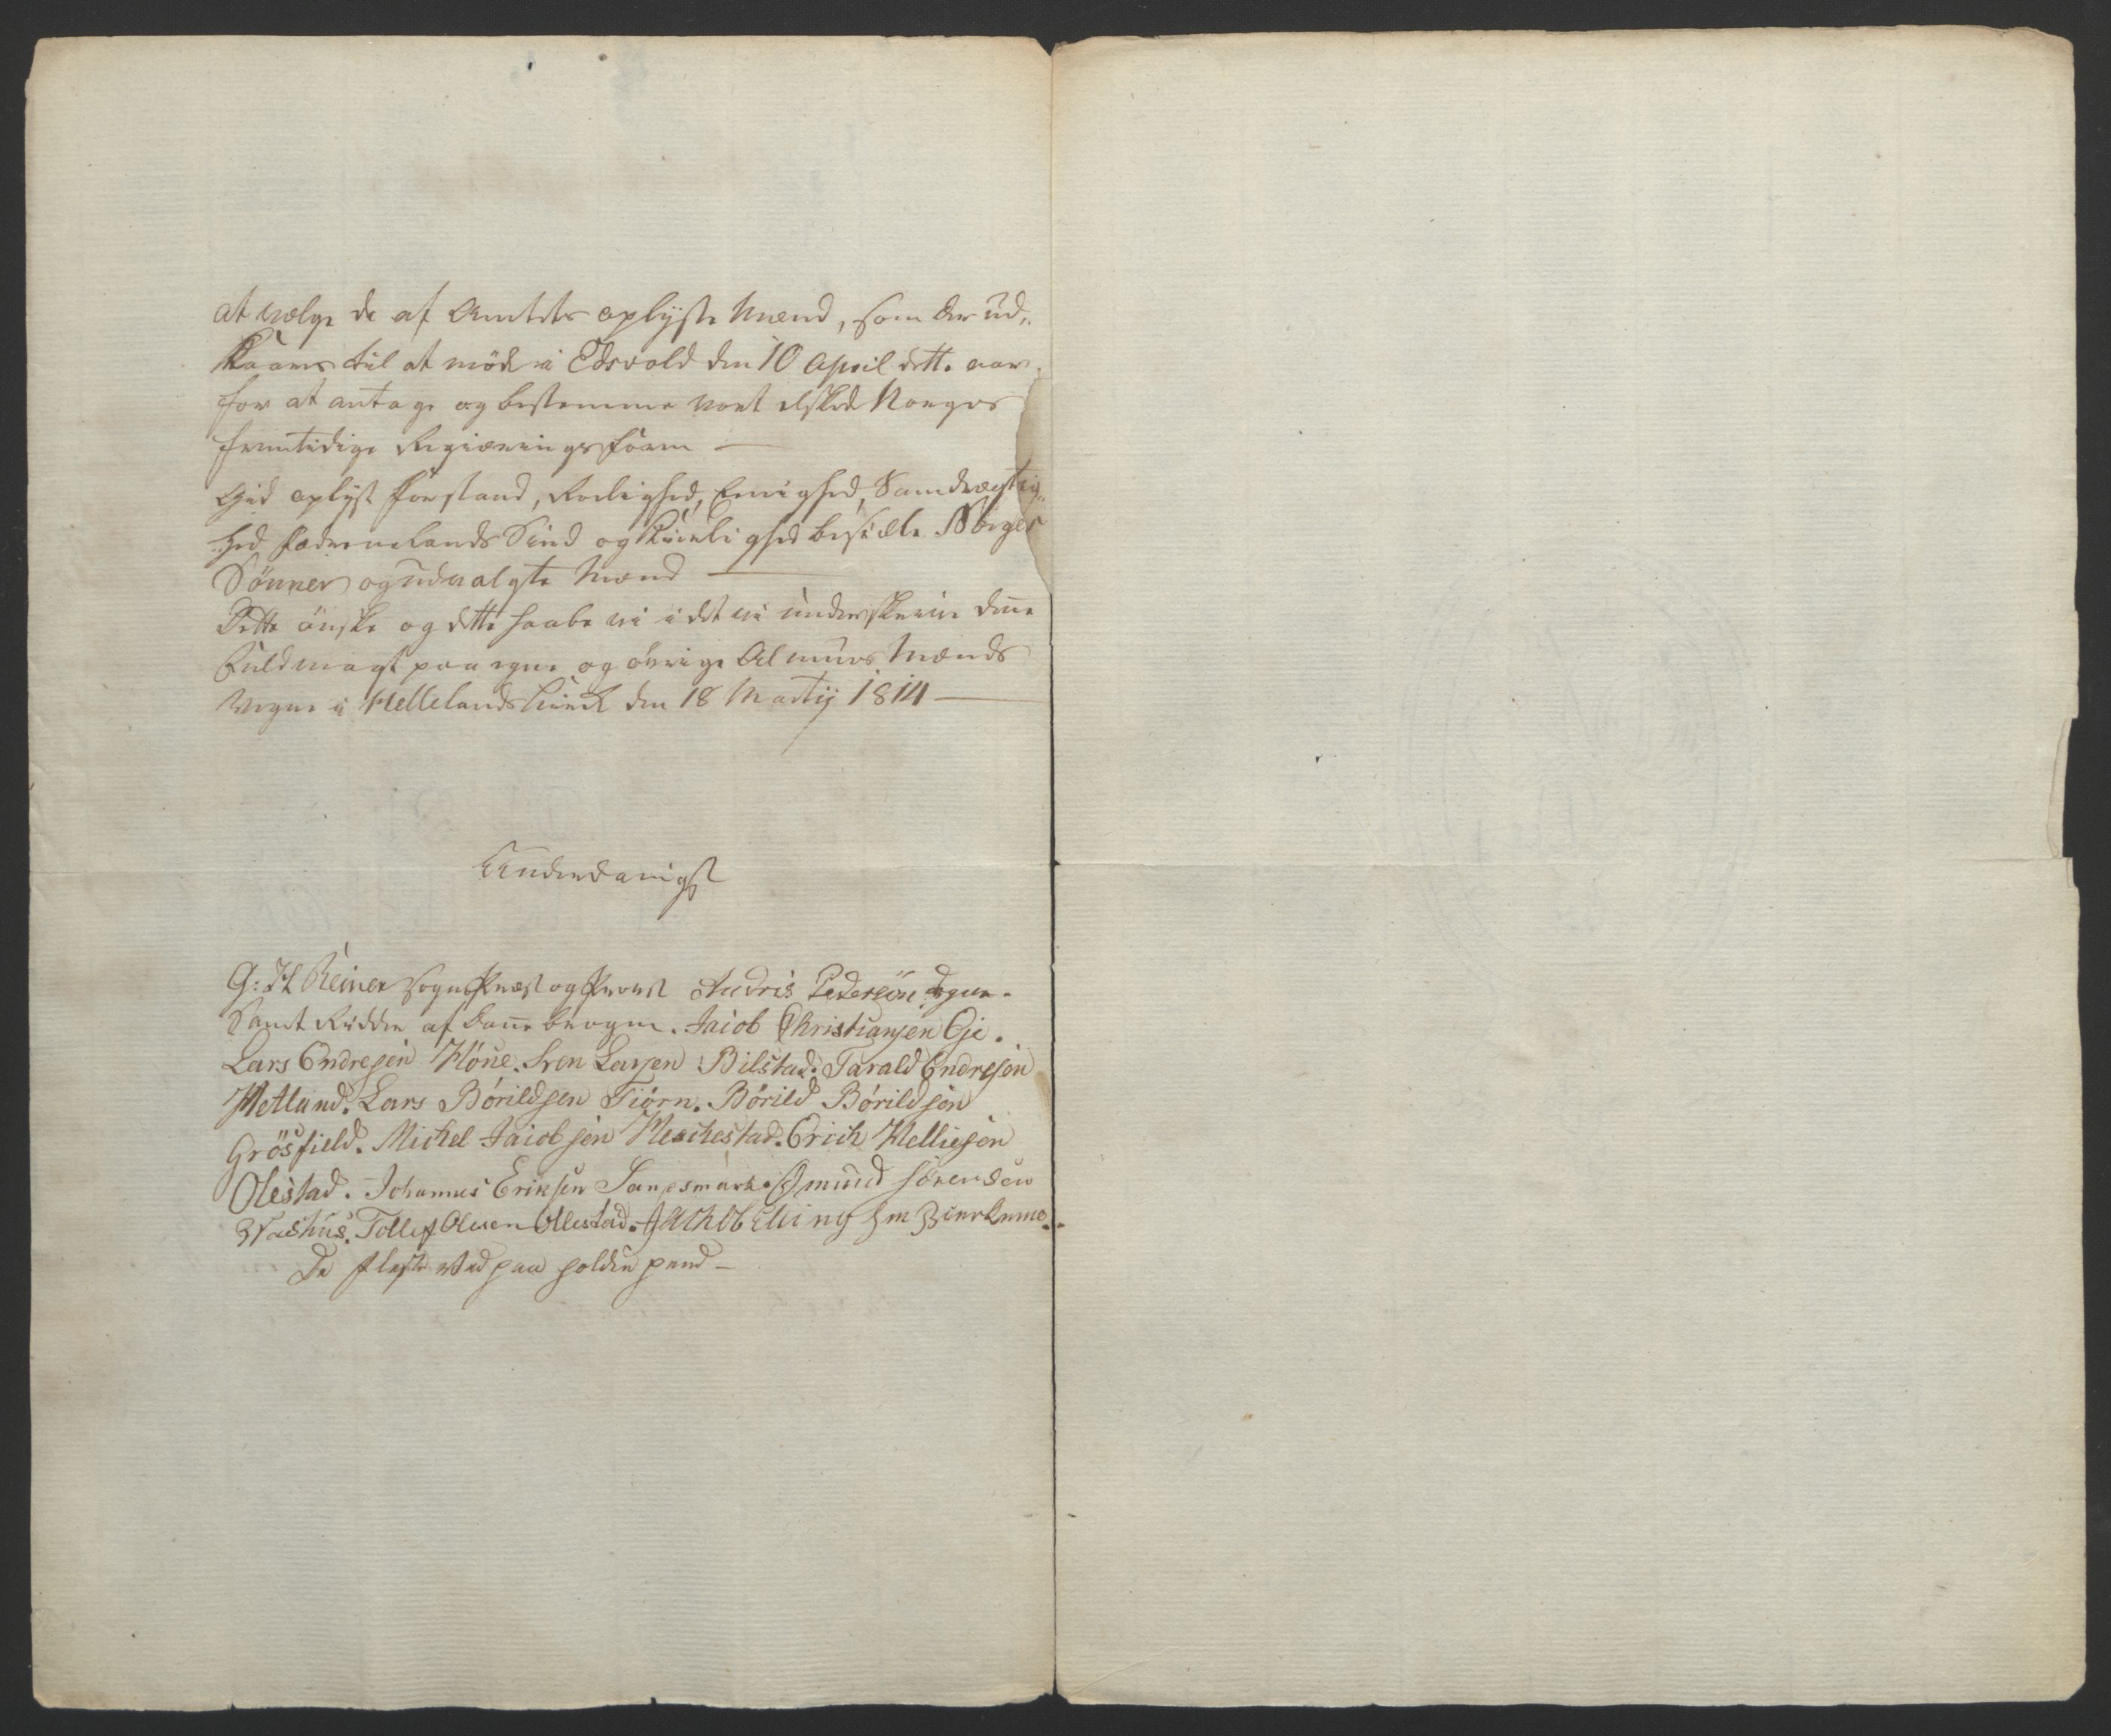 at vælge de af Amtets oplyste Mænd, som der ud„
kaares til at møde i Edsvold den 10 April dette aar
for at antage og bestemme vort elsked Norges
fremtidige Regieringsform —
Gid oplyst Forstand, Roelighed, Eenighed, Samdrægtig„
hed Fædrenelands Sind og Kierlighed besiæle Norges
Sönner og udvalgte Mænd —
Dette önske og dette haabe vi i det vi underskrive denne
Fuldmagt paa egne og övrige Almues Mænds
Vegne i Hellelands Kirke den 18 Martij 1814 —
Underdanigst
G: H Reiner Sognepræst og Provst Andris Pedersön
Samt Ridder af Dannebrogen. Jaiob Christiansen Eje.
Lars Endresen Höue. Sven Larsen Bilstad. Tarald Endresön
Hetland. Lars Börildsen Tiörn. Börild Börildsön
Grösfield. Michel Jaiobsen Men Erich Helliesen
Olestad. Johannes Eriksen Omund Sörensen
Washus. Tollef Olesen Ollestad.
De fleste ved paa holden pend —